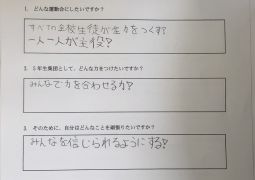 1. どんな運動会にしたいですか？
すべての全校生徒が全力をつくす？
一人一人が主役？
2. 5年生集団として、どんな力をつけたいですか？
みんなで力を合わせる力？
3. そのために、自分はどんなことを頑張りたいですか？
みんなを信じられるようにする？